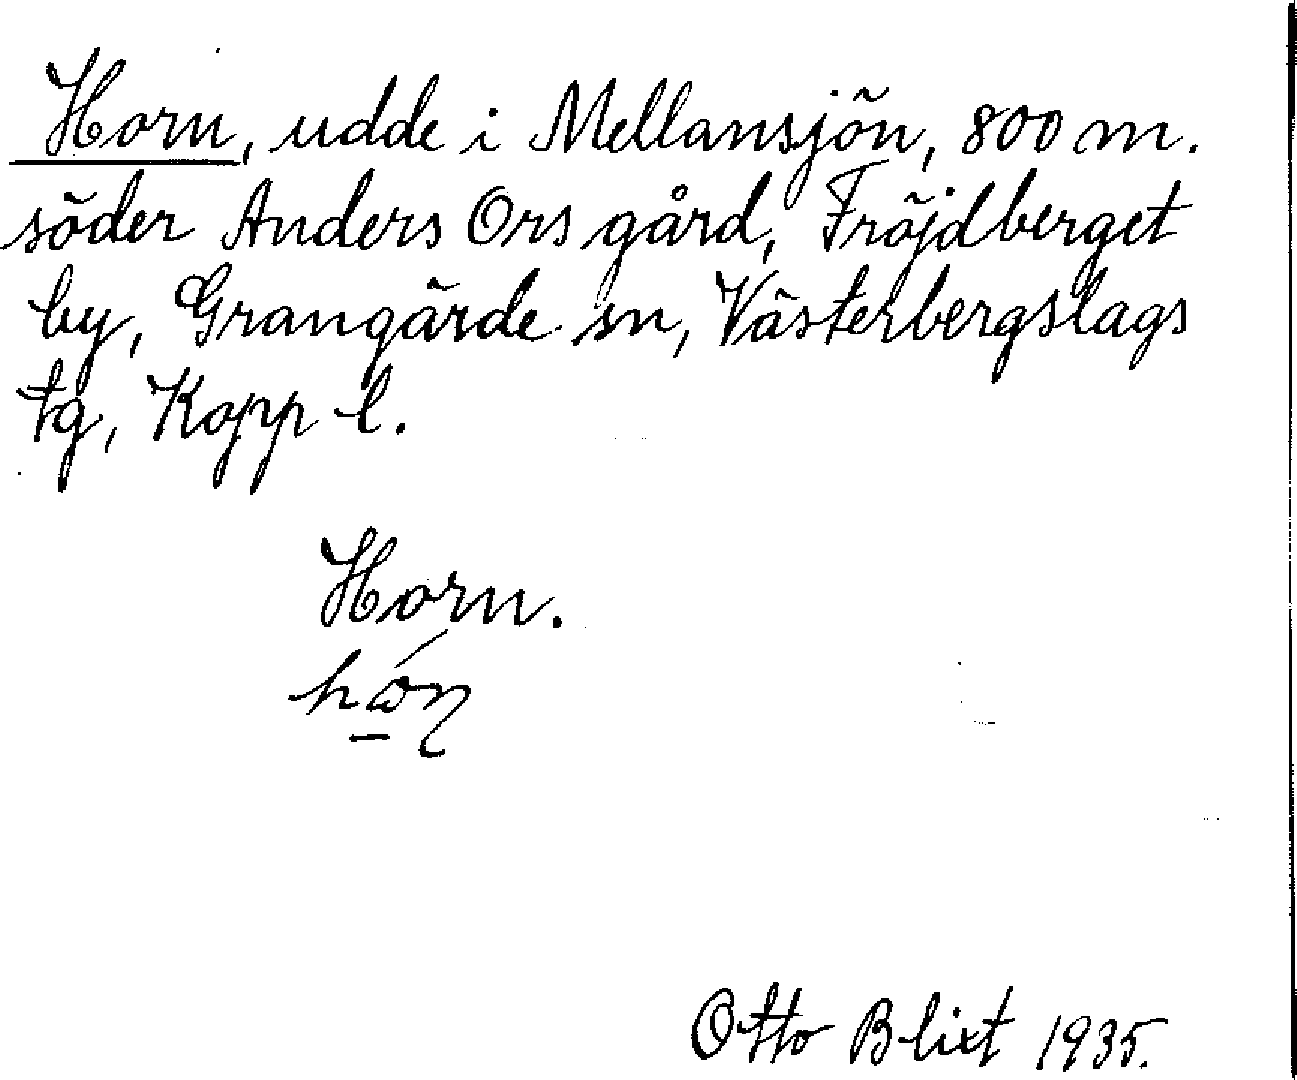 Horn, udde i Mellansjön, 800 m.
söder Anders Ors gård, Fröjdberget
by, Grangärde sn, Västerbergslags
tg, Kopp l.
Horn.
Otto Blixt 1935.